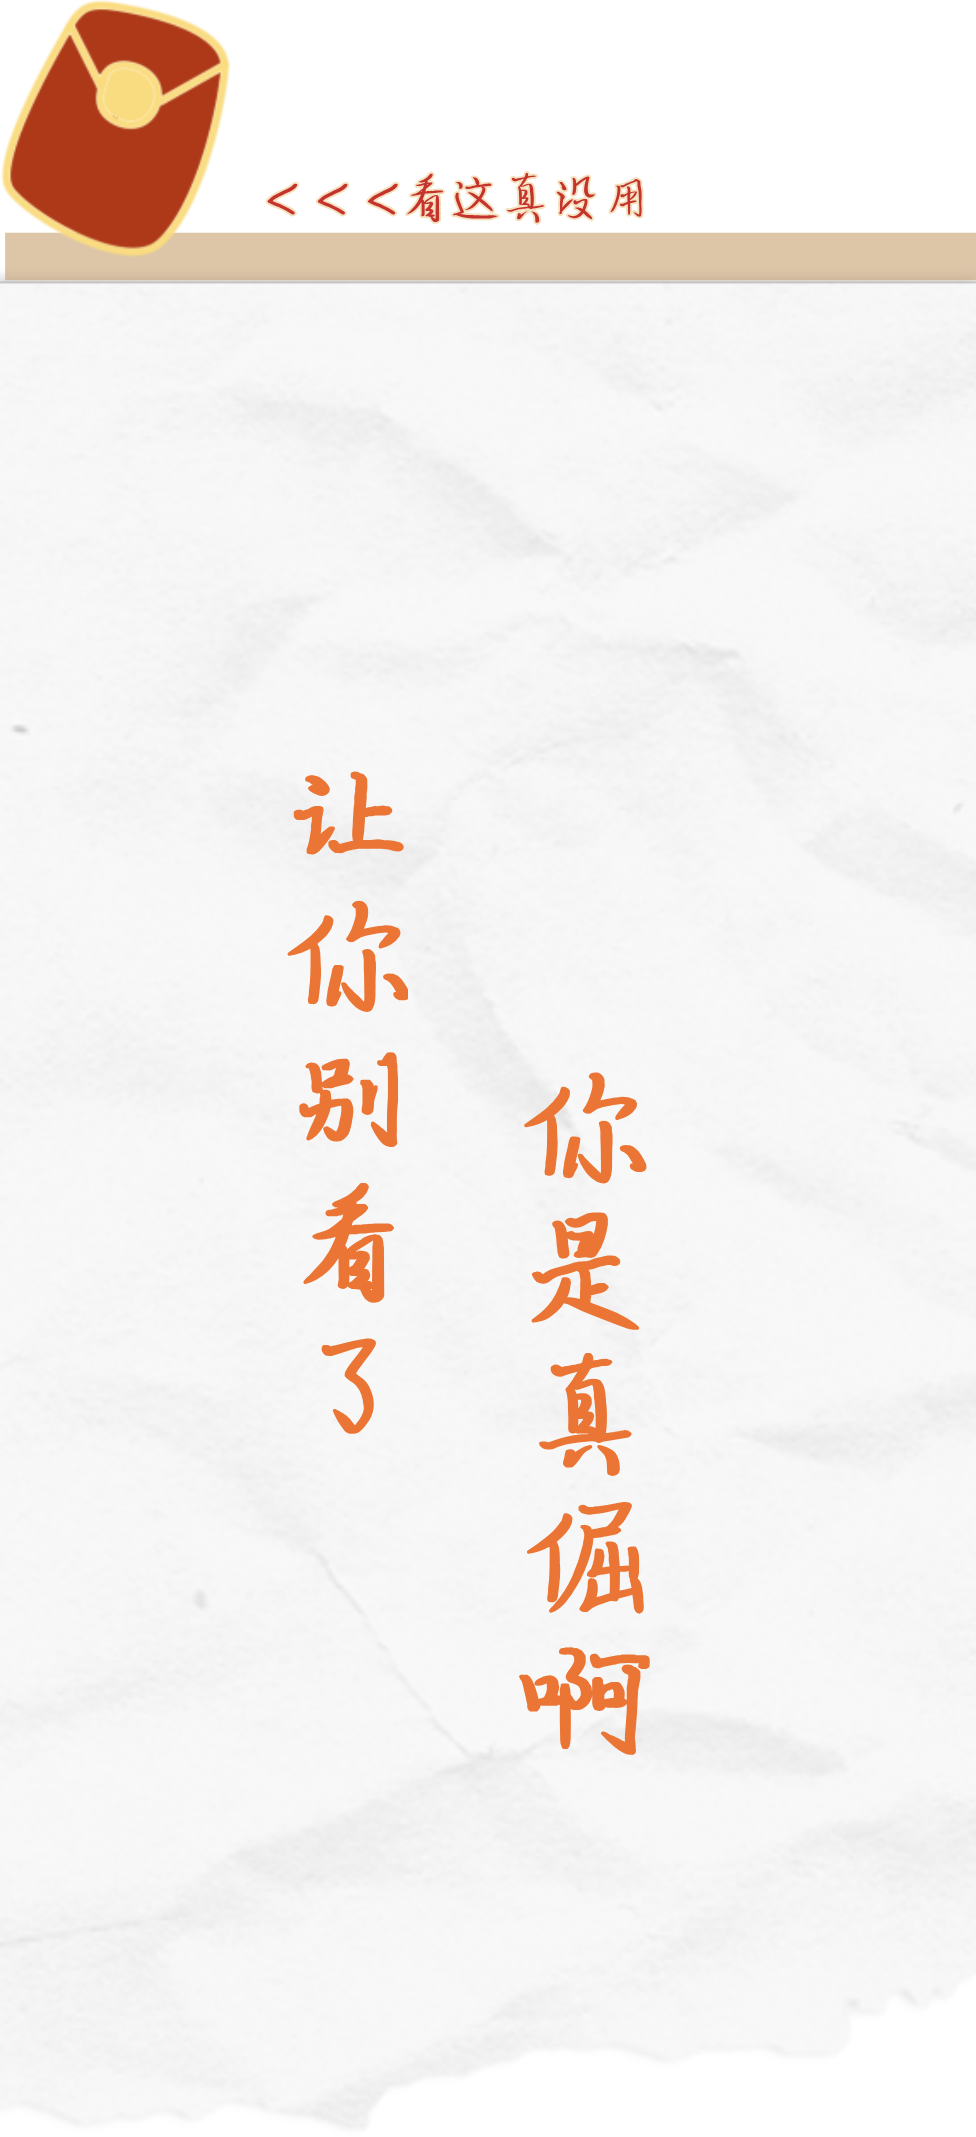 <<<看这真没用
让你别看了
你是真倔啊